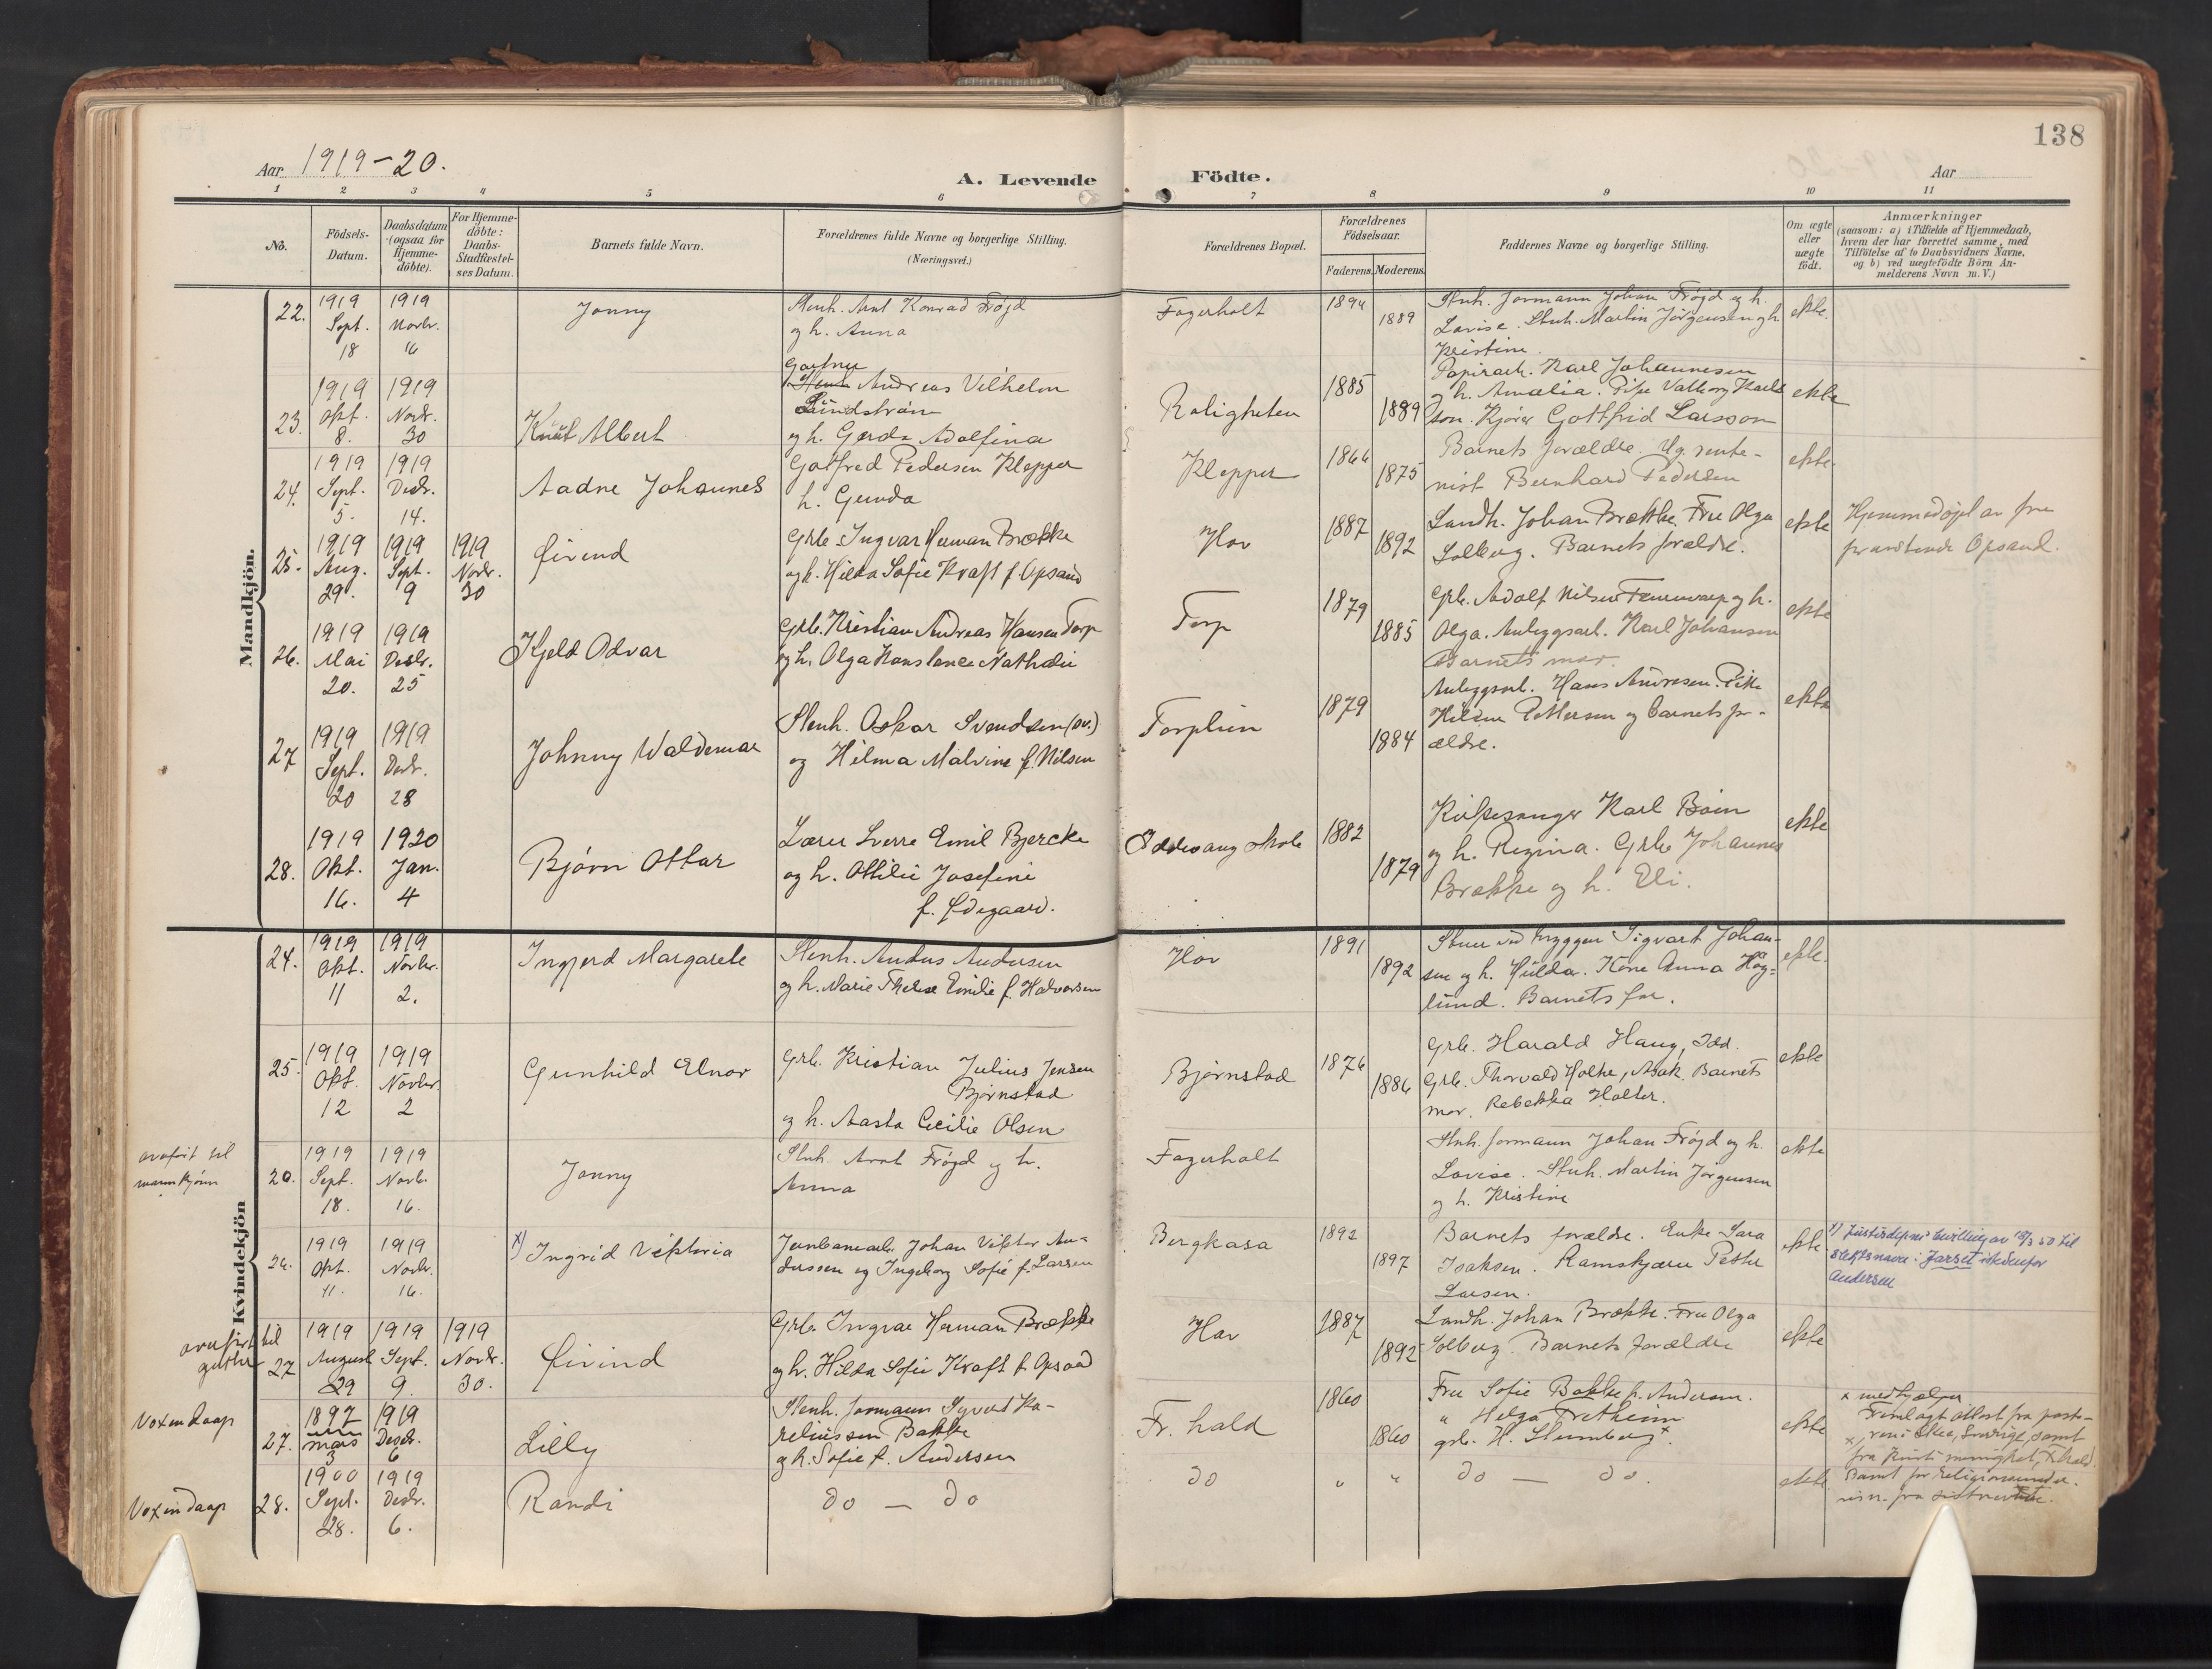 138
Aar 1919-20.
A. Levende Födte.
Aar
1 2 3 4 5 6 7 8 9 10 11
No.
Födsels-Datum.
Daabsdatum (ogsaa for Hjemme-döbte).
For Hjemme-döbte: Daabs-Stadfæstel-ses Datum.
Barnets fulde Navn.
Forældrenes fulde Navne og borgerlige Stilling. (Næringsvei.)
Forældrenes Bopæl.
Forældrenes Födselsaar.
Faderens. Moderens.
Faddernes Navne og borgerlige Stilling.
Om ægte eller uægte födt.
Anmærkninger
(saasom: a) i Tilfælde af Hjemmedaab, hvem der har forrettet samme, med Tilföielse af to Daabsvidners Navne, og b) ved uægtefödte Börn Anmelderens Navn m. V.)
Mandkjön.
22. 1919 Sept. 18 1919 Novbr. 16 Jonny Stenh. Arnt Konrad Frøjd og h. Anna Fagerholt 1894 1889 Stenh. formann Johan Frøjd og h. Lovise. Stenh. Martin Jörgensen og h. Kristine ekte.
23. 1919 Okt. 8. 1919 Novbr. 30 Knut Albert Gartner Andreas Vilhelm Lündström og h. Gerda Adolfina Roligheten 1885 1889 Papirarb. Karl Johannesen og h. Amalia. Pike Valborg Karlsson. Kjører Gottfrid Larsson ekte
24. 1919 Sept. 5. 1919 Desbr. 14. Aadne Johannes Gotfred Pedersen Klepper h. Gunda Klepper 1866 1875 Barnets forældre. Ug. rentenist Bernhard Pedersen ekte.
25. 1919 Aug. 29. 1919 Sept. 9 1919 Novbr. 30 Øivind Grb. Ingvar Herman Brække og h. Hilda Sofie Kraft f. Opsand Hov 1887 1892 Landh. Johan Brække. Fru Olga Solberg. Barnets forældre. ekte Hjemmedøpt av fru Opsand.
26. 1919 Mai 20. 1919 Desbr. 25 Kjeld Odvar Grb. Kristian Andreas Hansen Torp og h. Olga Konstance Nathalie Torp 1879 1885 Grb. Adolf Nilsen og h. Olga. Anleggsarb. Karl Johansen Barnets mor. ekte
27 1919 Sept. 20 1919 Desbr. 28 Johnny Waldemar Stenh. Oskar Svendsen (sv.) og Hilma Malvine f. Nilsen Torplien 1879 1884 Anleggsarb. Hans Andresen. Pike Pettersen og barnets forældre. ekte
28. 1919 Okt. 16. 1920 Jan. 4 Bjørn Ottar Lærer Sverre Emil Bjercke og h. Ottilie Josefine f. Ødegaard. Iddesang skole 1882 1879 Kirkesanger Karl Böin og h. Regina. Grb. Johannes Brække og h. Eli. ekte
Kvindekjön
24. 1919 Okt. 11 1919 Novbr. 2. Ingjerd Margarete Stenh. Anders Andersen og h. Marie Therese Emilie f. Halvorsen Hov 1891 1892 Stuer ved bryggen Sigvart Johansen og h. Hulda. Kone Anna Höglünd. Barnets far. ekte.
25. 1919 Okt. 12 1919 Novbr. 2 Gunhild Elnor Grb. Kristian Julius Jensen Bjørnstad og h. Aasta Cecilie Olsen Bjørnstad 1876 1886 Grb. Harald Haug, Idd. Grb. Thorvald Holte, Asak. Barnets mor. Rebekka Holter. ekte
overført til mannkjønn 20. 1919 Sept. 18. 1919 Novbr. 16. Jonny Stenh. Arnt Frøjd og h. Anna Fagerholt Stenh. formann Johan Frøjd og h. Lovise. Stenh. Martin Jörgensen og h. Kristine ekte
26. 1919 Okt. 11. 1919 Novbr. 16. x) Ingrid Viktoria Jernbanearb. Johan Viktor Anderssen og Ingeborg Sofie f. Larsen Bergkasa 1892 1897 Barnets forældre. Enke Sara Isaksen. Petter Larsen. ekte x) Justisdeptets bevilling av 18/3 50 til slektsnavn: Jarset istedenfor Andersen
overført til gutter 27 1919 August 29 1919 Sept. 9. 1919 Novbr. 30. Øivind Grb. Ingvar Herman Brække og h. Hilda Sofie Kraft f. Opsand Hov 1887 1892 Landh. Johan Brække. Fru Olga Solberg. Barnets forældre ekte
Voxendaap 27. 1897 mars 3 1919 Desbr. 6 Lilly Stenh. formann Syvert Kareliussen Bakke og h. Sofie f. Andersen Fr. hald 1860 1860 Fru Sofie Bakke f. Andersen. " Helga Fretheim grb. H. Stumberg x ekte x medhjælper Fremlagt attest fra pastoren i Skee, Sverige, samt fra menighet, F.hald.
Voxendaap 28. 1900 Sept. 28. 1919 Desbr. 6. Randi do — do do " " do — do. ekte samt for religionsunder-